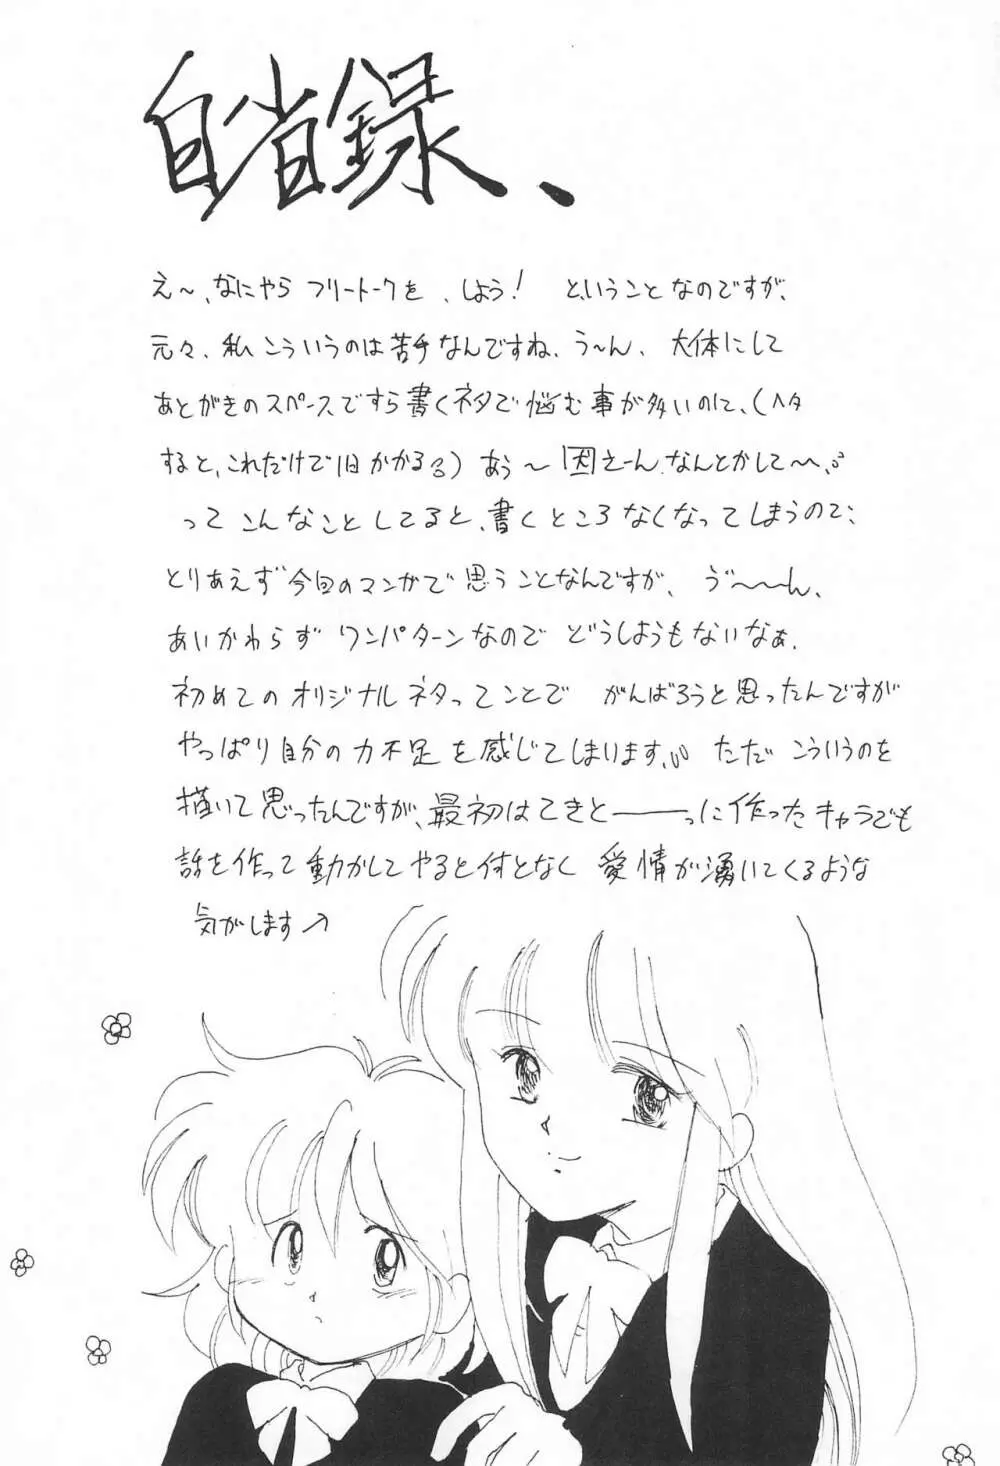 自省録、
え〜、なにやらフリートークを、しよう! ということなのですが、
元々、私こういうのは苦手なんですね、う〜ん、大体にして
あとがきのスペースですら書くネタで悩む事が多いのに、(ヘタ
すると、これだけで1日かかるる) あぅ〜 困えーん、なんとかして〜、
ってこんなことしてると、書くところなくなってしまうので、
とりあえず今回のマンガで思うことなんですが、ゔ〜〜〜ん、
あいかわらずワンパターンなのでどうしようもないなぁ、
初めてのオリジナルネタってことで がんばろうと思ったんですが
やっぱり自分の力不足を感じてしまります、 ただこういうのを
描いて思ったんですが、最初はてきとーーーっに作ったキャラでも
話を作って動かしてやると何となく愛情が湧いてくるような
気がします